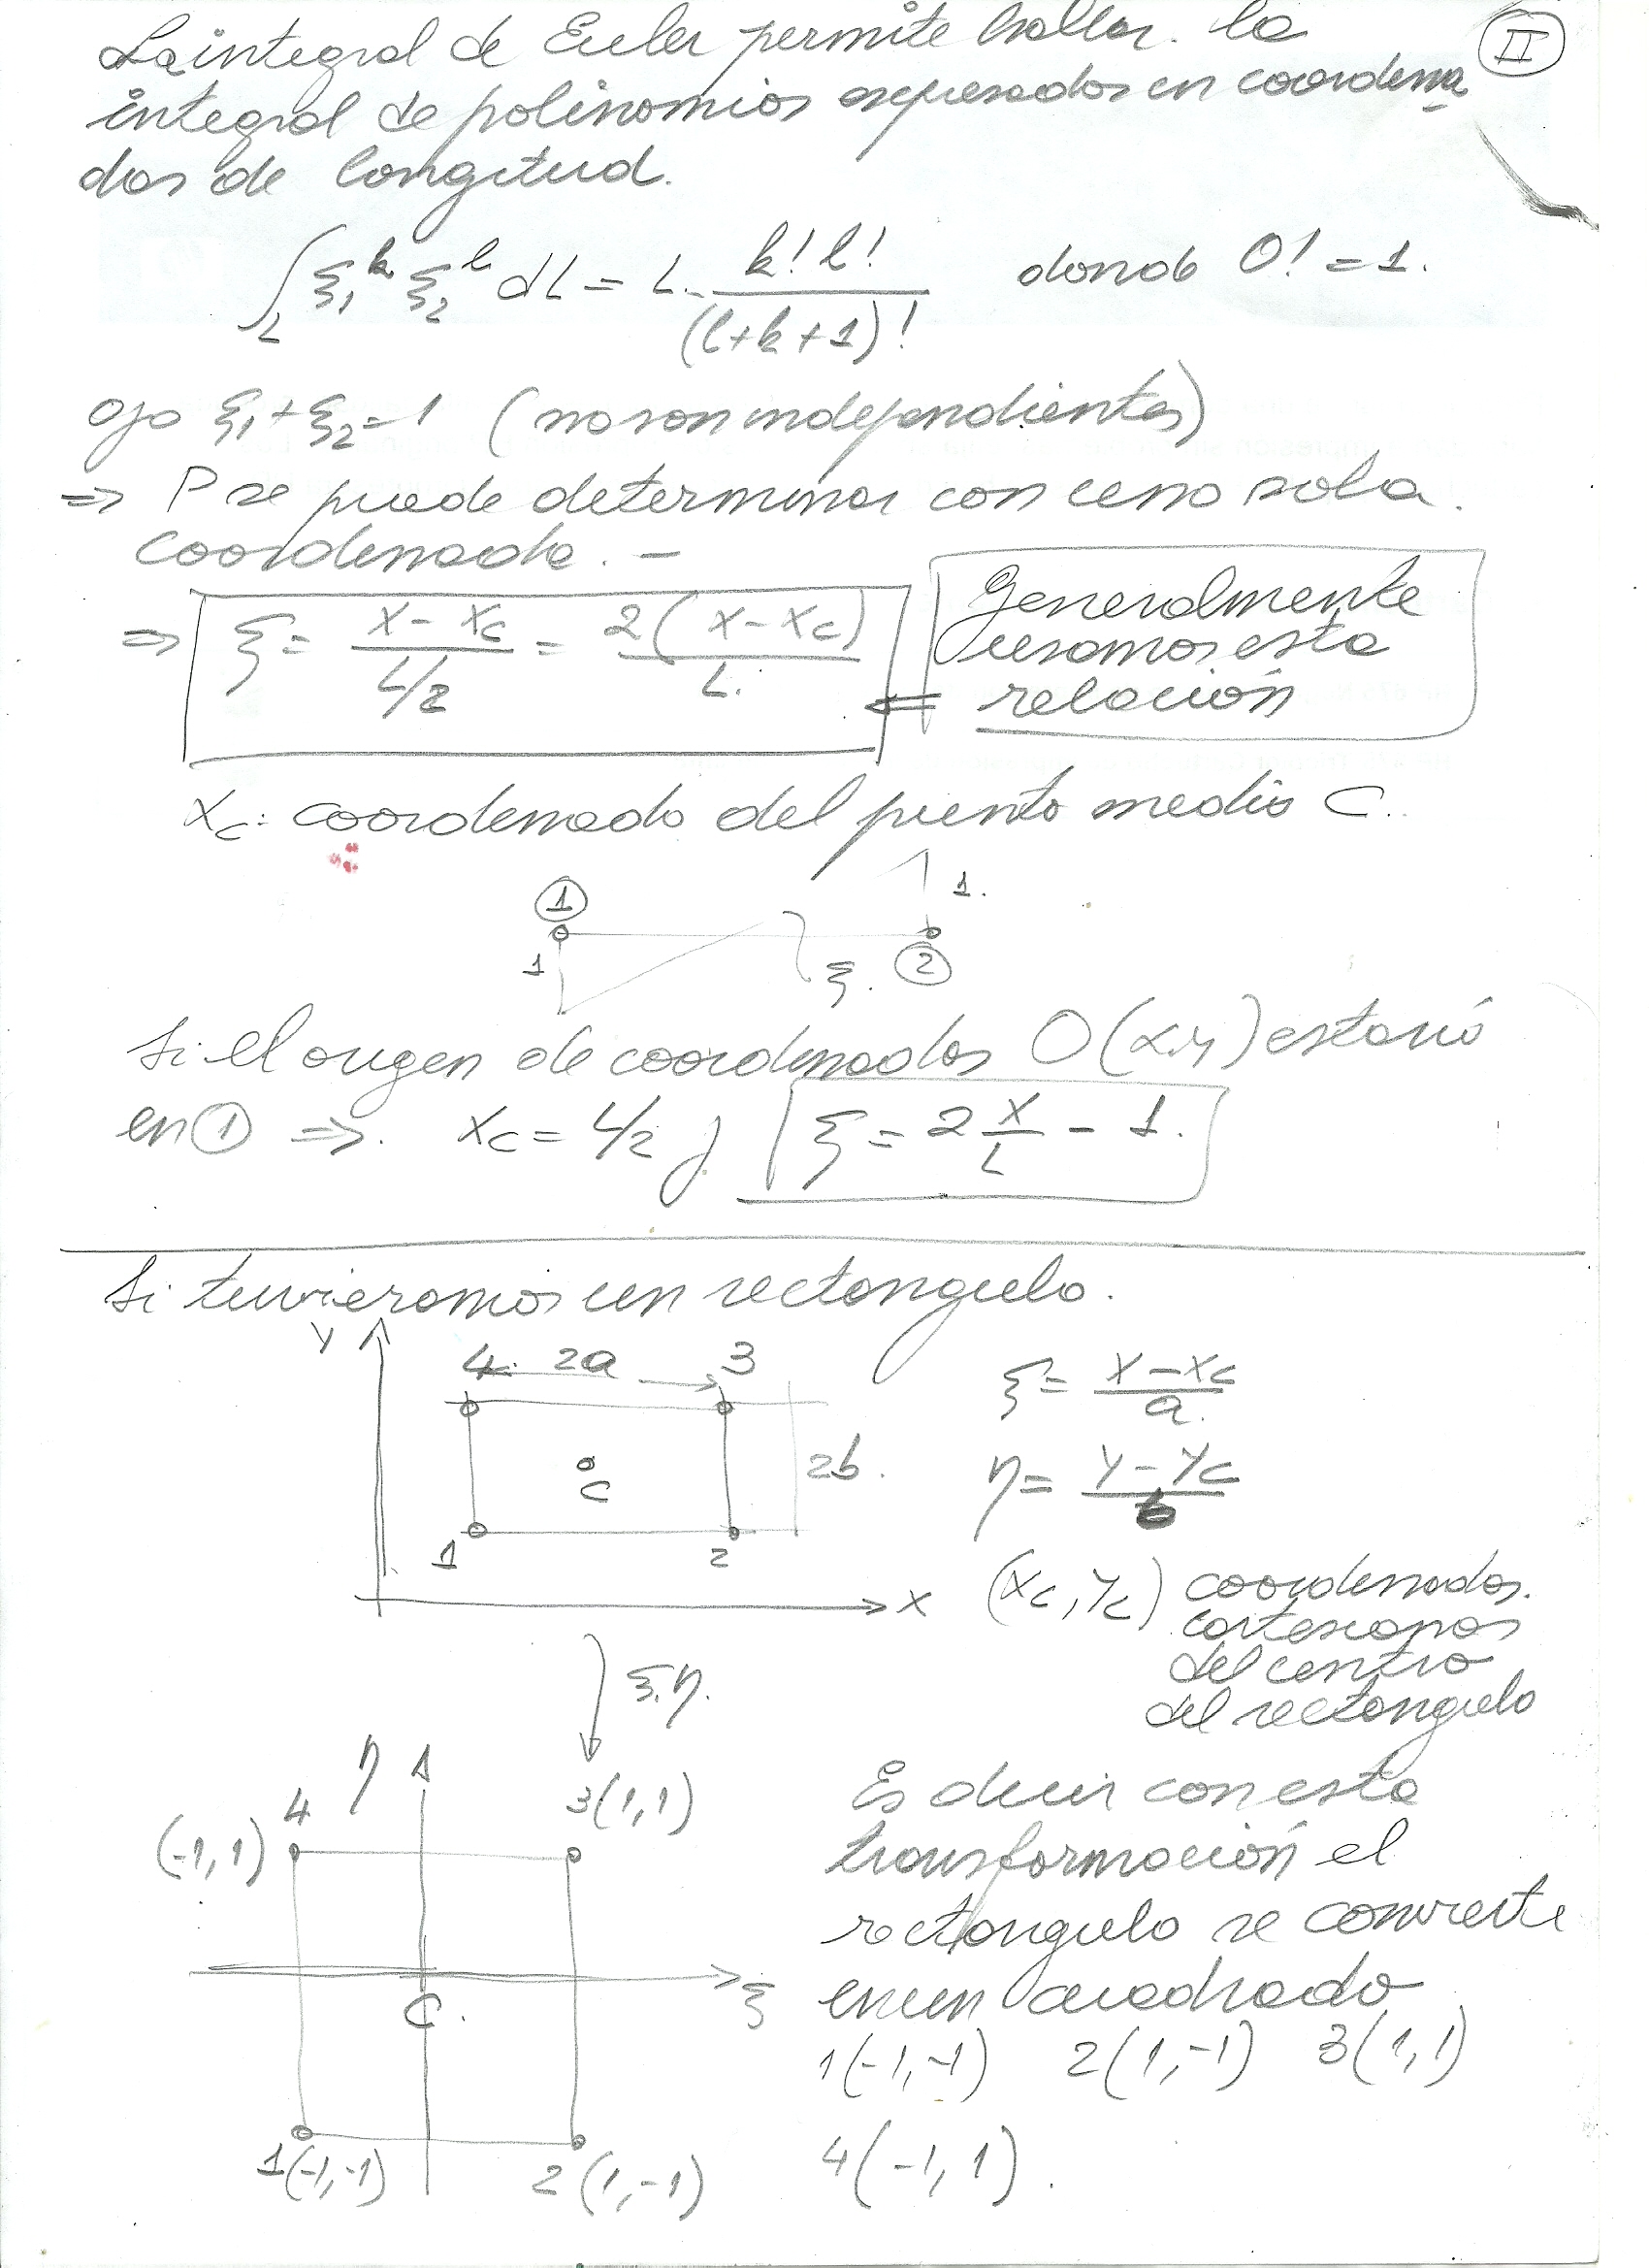 La integral de Euler permite hallar la
II
integral de polinomios expresados en coordena
das de longitud.
∫_L ξ₁^k ξ₂^l dL = L · k! l! / (l+k+1)! donde 0! = 1.
ojo ξ₁ + ξ₂ = 1 (no son independientes)
⇒ P se puede determinar con una sola
coordenada. –
⇒ ξ = (x - xc) / (L/2) = 2(x - xc) / L.
Generalmente
usamos esta
⇐ relación
xc: coordenada del punto medio C.
1 1.
1 ξ. 2
Si el origen de coordenadas O(x,y) estaría
en 1 ⇒. xc = L/2 y ξ = 2 x/L - 1.
Si tuvieramos un rectangulo.
Y
4 2a 3
ξ = (x - xc) / a.
C 2b.
η = (y - yc) / b
1 2
x
(xc, yc) coordenadas.
cartesianas
del centro
del rectangulo
ξ.η.
η
4 3(1,1)
(-1,1)
Es decir con esta
transformación el
rectangulo se convierte
en un cuadrado
ξ
C.
1(-1,-1) 2(1,-1) 3(1,1)
4(-1,1).
1(-1,-1) 2(1,-1)